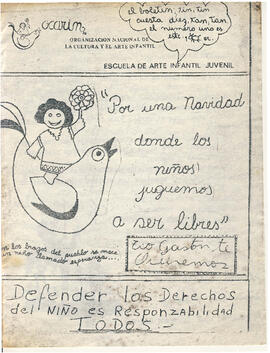 el boletín, rín, tín
cuesta diez, tan, tan
el numero uno es
este
ocarin
ORGANIZACION NACIONAL DE
LA CULTURA Y EL ARTE INFANTIL
ESCUELA DE ARTE INFANTIL JUVENIL
"Por una Navidad
donde los
niños
juguemos
a ser libres"
los brazos del pueblo se mece
un niño llamado esperanza...
Tio Gastón te
Queremos
Defender los Derechos
del NIÑO es Responzabilidad
TODOS.-